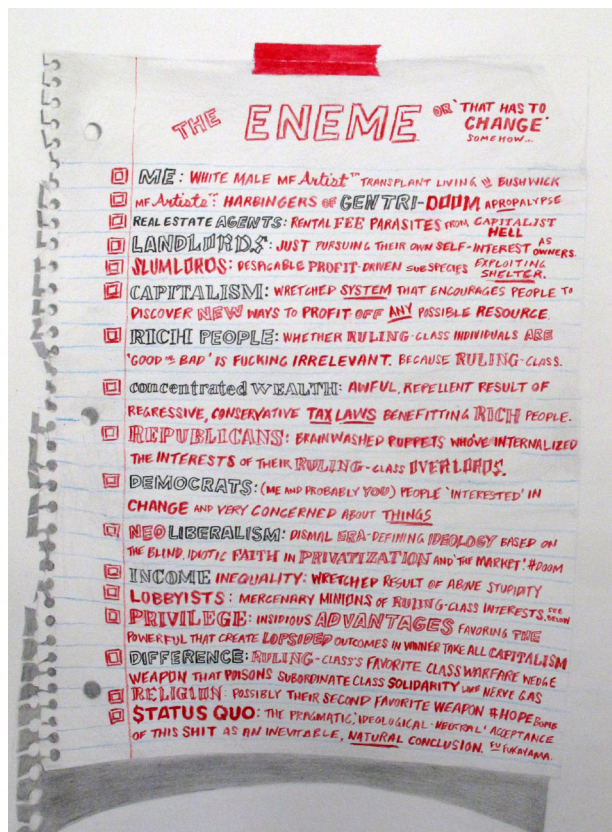 THE ENEME OR 'THAT HAS TO
CHANGE'
SOMEHOW...
ME: WHITE MALE MF Artist™ TRANSPLANT LIVING IN BUSHWICK
MF Artists™: HARBINGERS OF GENTRI-DOOM APROPALYPSE
REAL ESTATE AGENTS: RENTAL FEE PARASITES FROM CAPITALIST
HELL
LANDLORDS: JUST PURSUING THEIR OWN SELF-INTEREST AS
OWNERS.
SLUMLORDS: DESPICABLE PROFIT-DRIVEN SUBSPECIES EXPLOITING
SHELTER.
CAPITALISM: WRETCHED SYSTEM THAT ENCOURAGES PEOPLE TO
DISCOVER NEW WAYS TO PROFIT OFF ANY POSSIBLE RESOURCE.
RICH PEOPLE: WHETHER RULING-CLASS INDIVIDUALS ARE
'GOOD OR BAD' IS FUCKING IRRELEVANT. BECAUSE RULING-CLASS.
concentrated WEALTH: AWFUL, REPELLENT RESULT OF
REGRESSIVE, CONSERVATIVE TAX LAWS BENEFITTING RICH PEOPLE.
REPUBLICANS: BRAINWASHED PUPPETS WHO'VE INTERNALIZED
THE INTERESTS OF THEIR RULING-CLASS OVERLORDS.
DEMOCRATS: (ME AND PROBABLY YOU) PEOPLE 'INTERESTED' IN
CHANGE AND VERY CONCERNED ABOUT THINGS
NEOLIBERALISM: DISMAL ERA-DEFINING IDEOLOGY BASED ON
THE BLIND, IDIOTIC FAITH IN PRIVATIZATION AND 'THE MARKET'. #DOOM
INCOME INEQUALITY: WRETCHED RESULT OF ABOVE STUPIDITY
LOBBYISTS: MERCENARY MINIONS OF RULING-CLASS INTERESTS. SEE
BELOW
PRIVILEGE: INSIDIOUS ADVANTAGES FAVORING THE
POWERFUL THAT CREATE LOPSIDED OUTCOMES IN WINNER TAKE ALL CAPITALISM
DIFFERENCE: RULING-CLASS'S FAVORITE CLASS WARFARE WEDGE
WEAPON THAT POISONS SUBORDINATE CLASS SOLIDARITY LIKE NERVE GAS
RELIGION: POSSIBLY THEIR SECOND FAVORITE WEAPON #HOPE BOMB
STATUS QUO: THE PRAGMATIC, 'IDEOLOGICAL-NEUTRAL' ACCEPTANCE
OF THIS SHIT AS AN INEVITABLE, NATURAL CONCLUSION. FU FUKUYAMA.